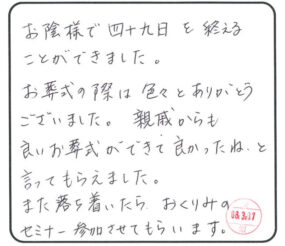 お陰様で四十九日を終える
ことができました。
お葬式の際は色々とありがとう
ございました。親戚からも
良いお葬式ができて良かったね、と
言ってもらえました。
また落ち着いたら おくりみの
セミナー参加させてもらいます。